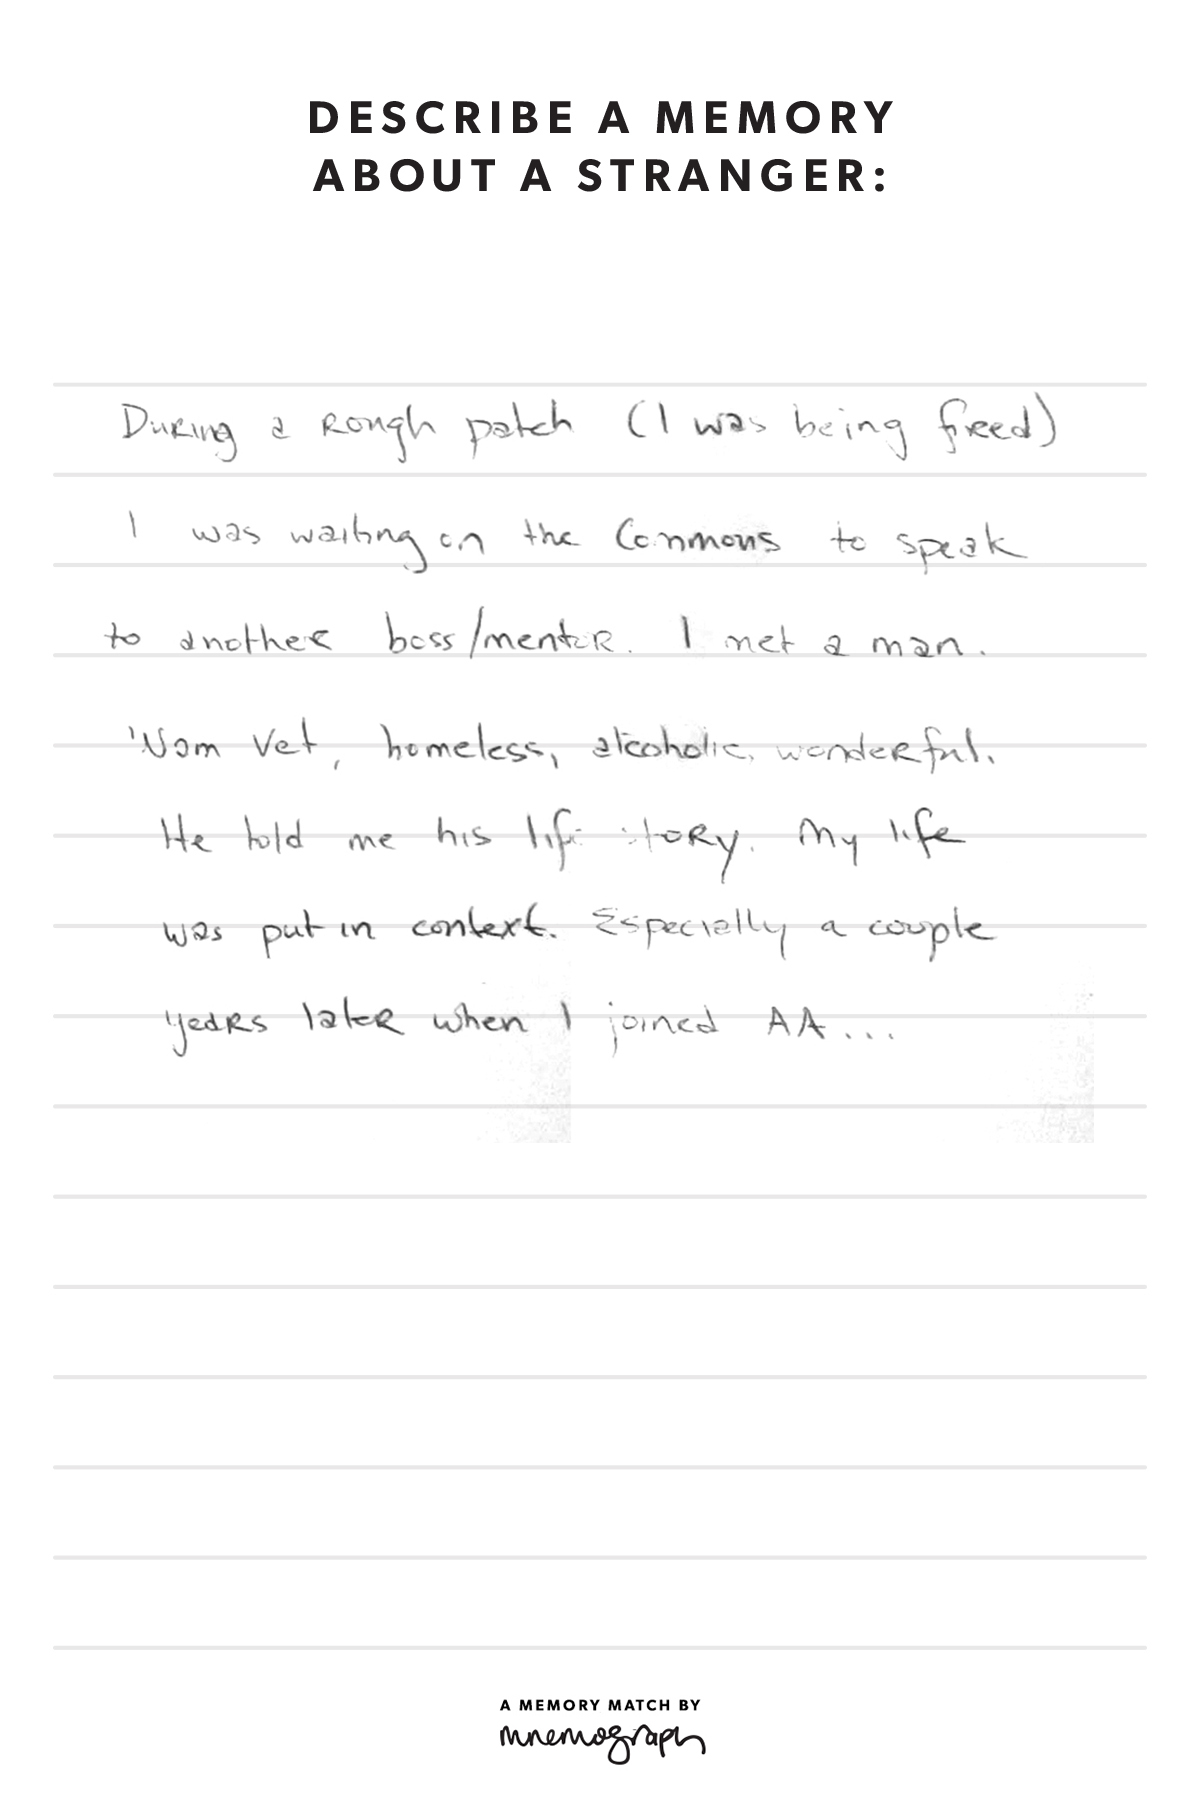 DESCRIBE A MEMORY
ABOUT A STRANGER:
During a rough patch (I was being fired)
I was waiting on the Commons to speak
to another boss/mentor. I met a man.
'Nam Vet, homeless, alcoholic, wonderful.
He told me his life story. My life
was put in context. Especially a couple
years later when I joined AA...
A MEMORY MATCH BY
mnemograph